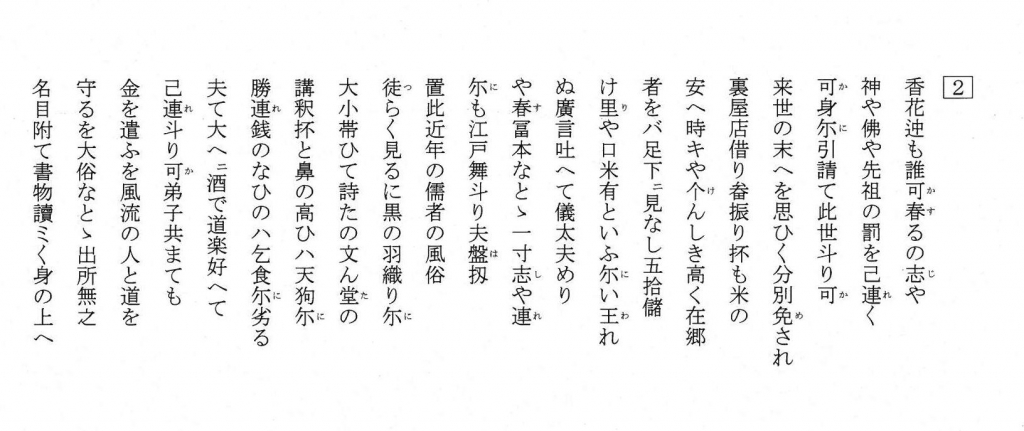 2
香花迚も誰可春るの志や
神や佛や先祖の罰を己連く
可身尓引請て此世斗り可
来世の末へを思ひく分別免され
裏屋店借り畚振り抔も米の
安へ時キや个んしき高く在郷
者をバ足下ニ見なし五拾儲
け里や口米有といふ尓い王れ
ぬ廣言吐へて儀太夫めり
や春冨本なとゝ一寸志や連
尓も江戸舞斗り夫盤扨
置此近年の儒者の風俗
徒らく見るに黒の羽織り尓
大小帯ひて詩たの文ん堂の
講釈抔と鼻の高ひハ天狗尓
勝連銭のなひのハ乞食尓劣る
夫て大へニ酒で道楽好へて
己連斗り可弟子共まても
金を遣ふを風流の人と道を
守るを大俗なとゝ出所無之
名目附て書物讀ミく身の上へ